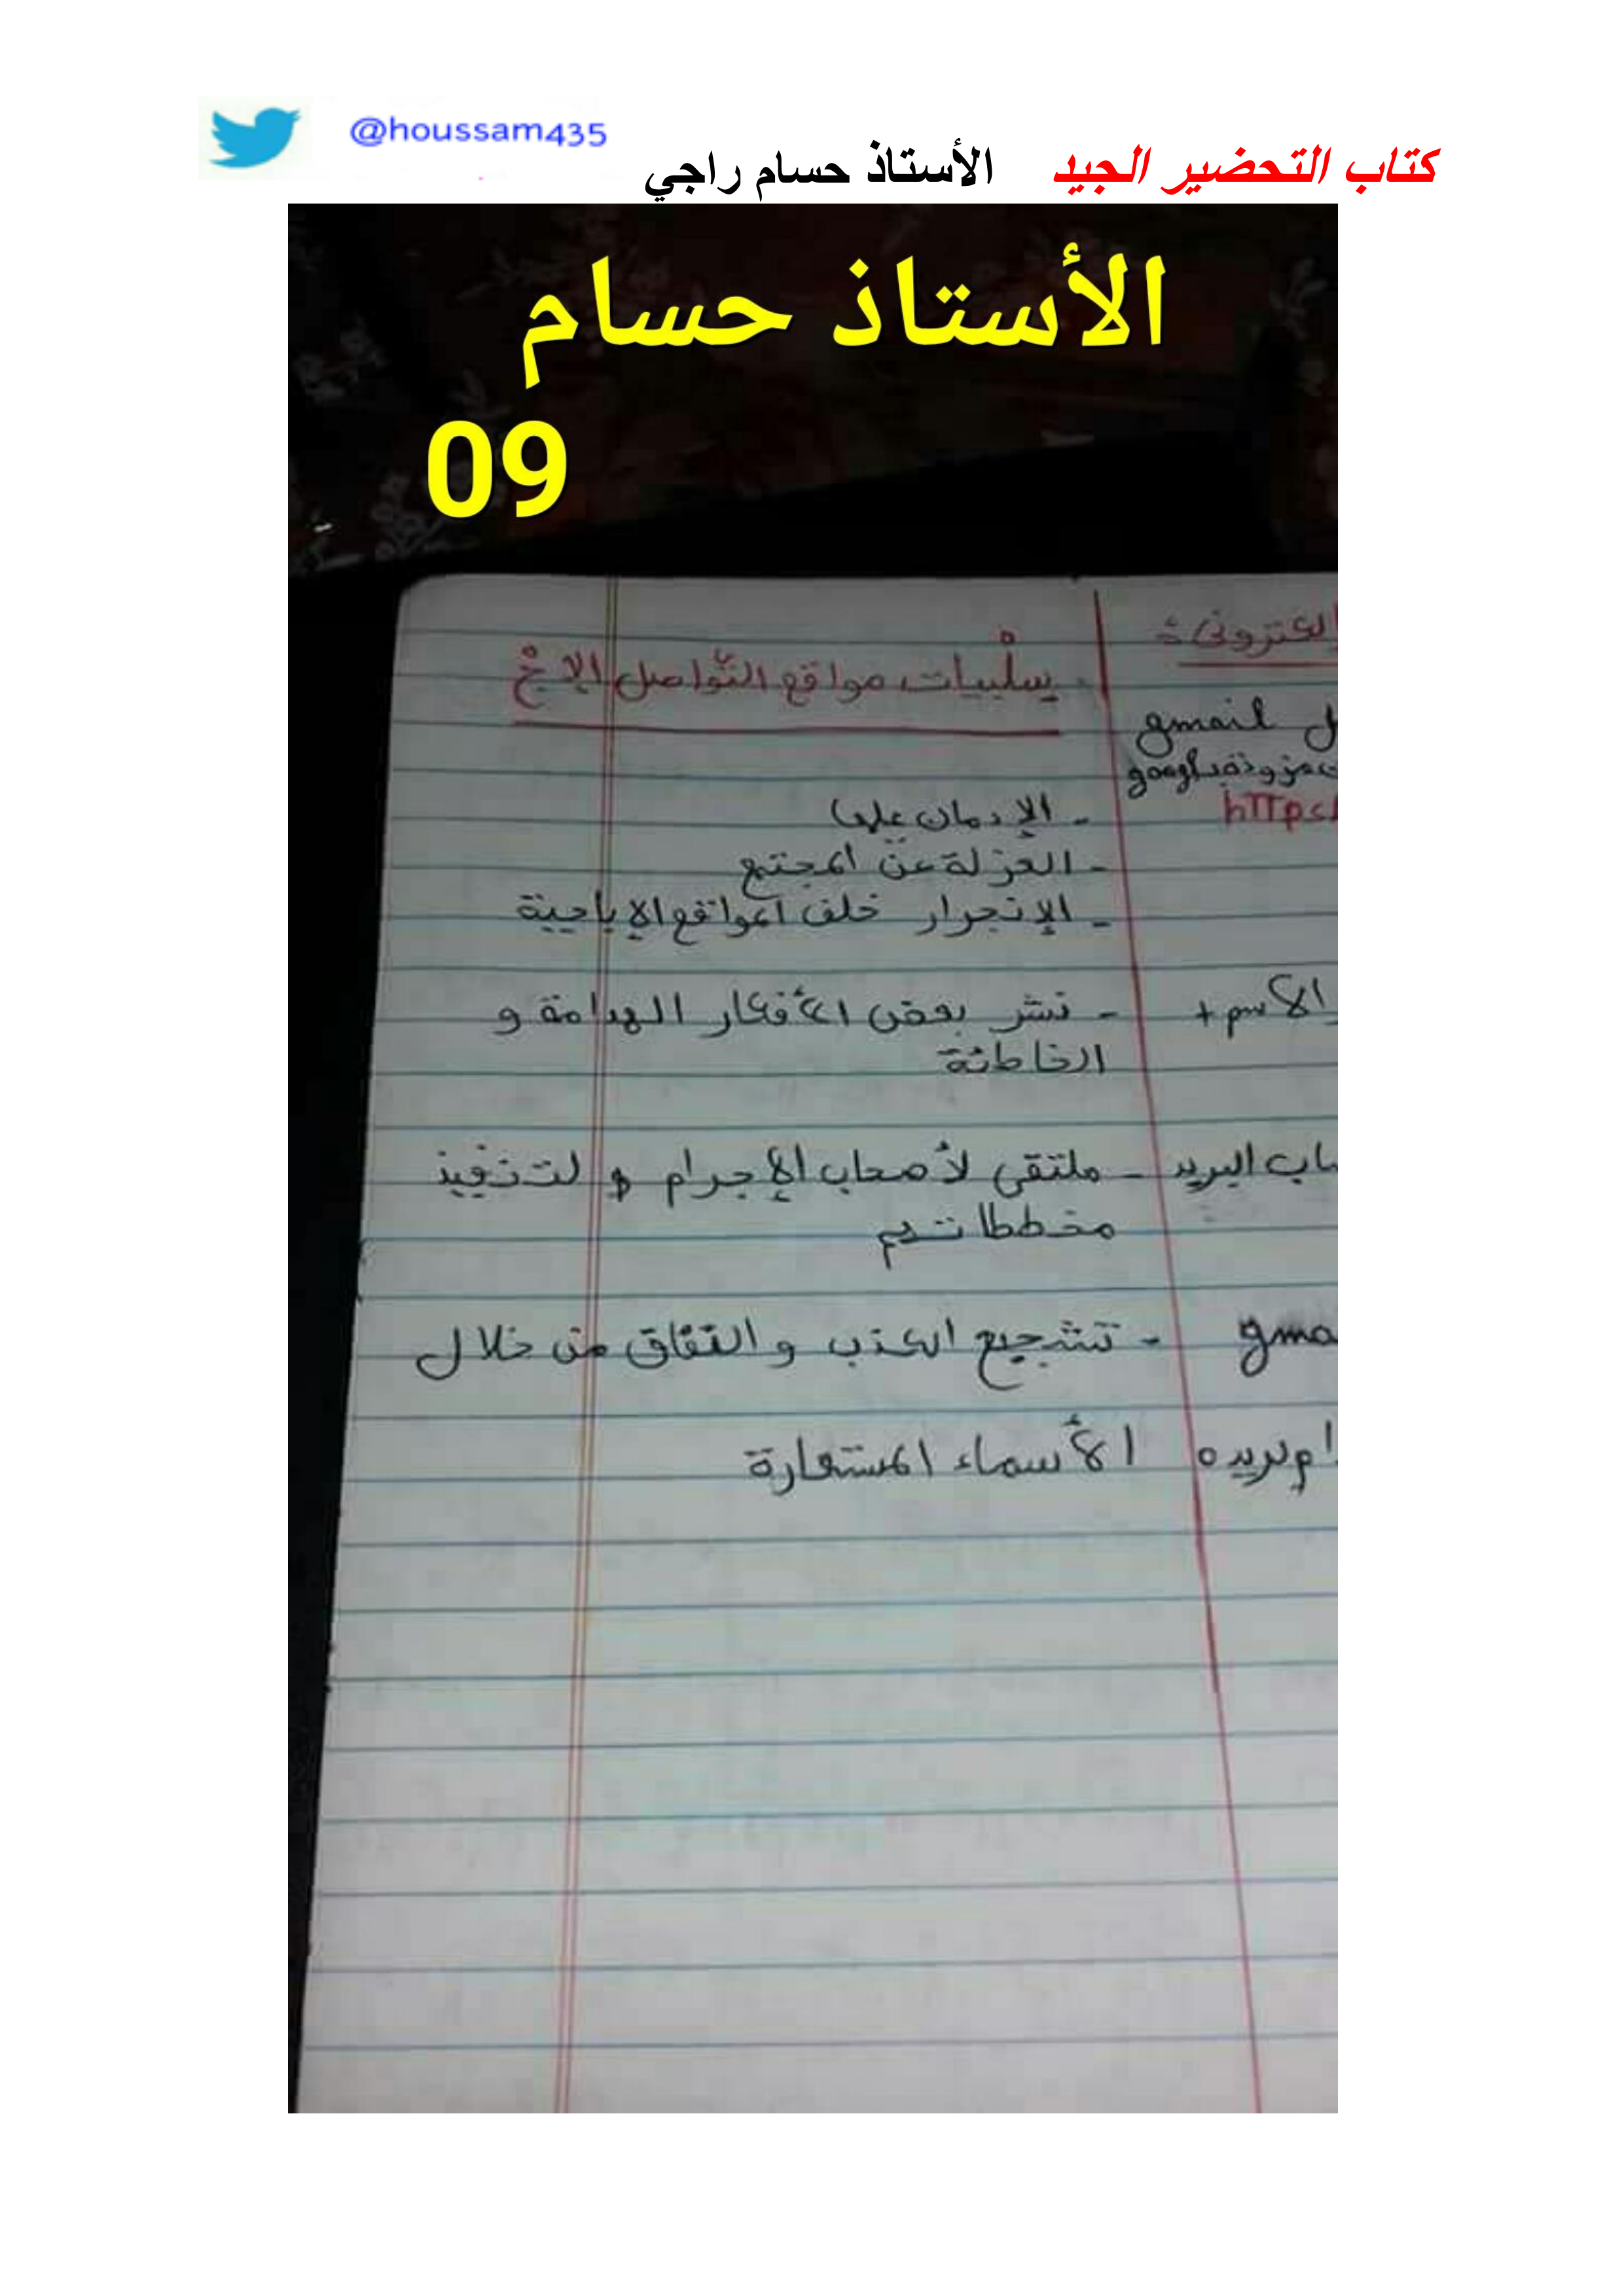 @houssam435
كتاب التحضير الجيد الأستاذ حسام راجي
الأستاذ حسام
09
لكتروني :
gmail ل
google
https:/
الاسم +
ساب البريد
gma
سلبيات مواقع التواصل الإجْ
- الإدمان عليها
- العزلة عن المجتمع
- الإنجرار خلف المواقع الإباحية
- نشر بعض الأفكار الهدامة و
الخاطئة
- ملتقى لأصحاب الإجرام و لتنفيذ
مخططاتهم
- تشجيع الكذب والنفاق من خلال
الأسماء المستعارة